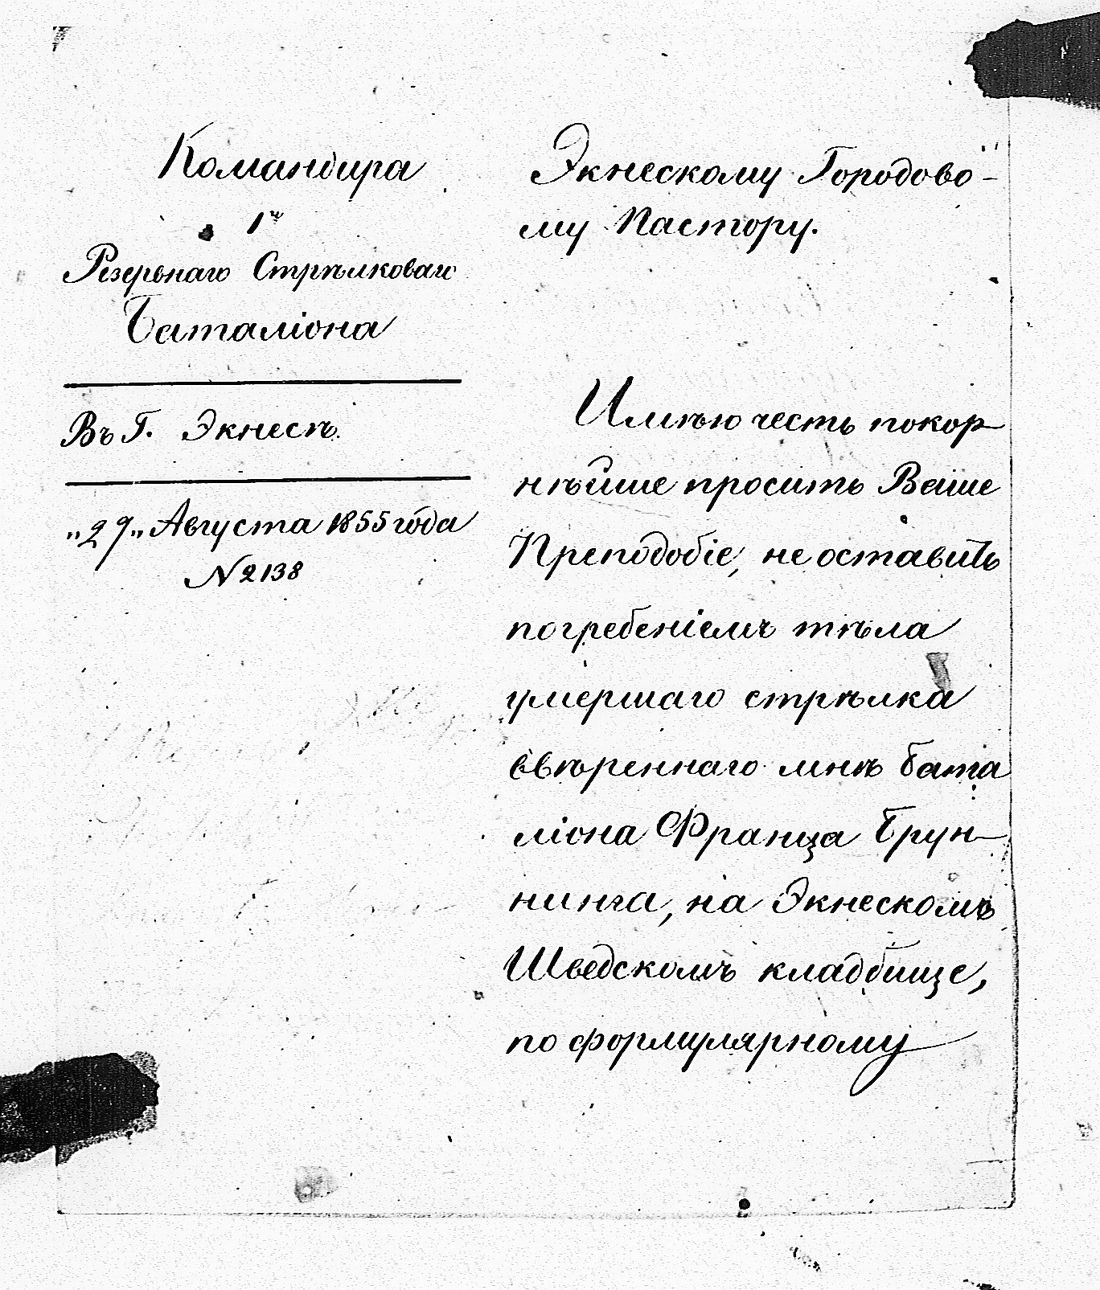 Командира
1го
Резервнаго Стрѣлковаго
Баталіона
Въ Г. Экнесѣ.
„29„ Августа 1855 года
№ 2138
Экнескому Городово-
му Пастору.
Имѣю честь покор-
нѣйше просить Ваше
Преподобіе, не оставить
погребеніемъ тѣла
умершаго стрѣлка
ввѣреннаго мнѣ бата
ліона Франца Брун-
нинга, на Экнескомъ
Шведскомъ кладбище,
по формулярному